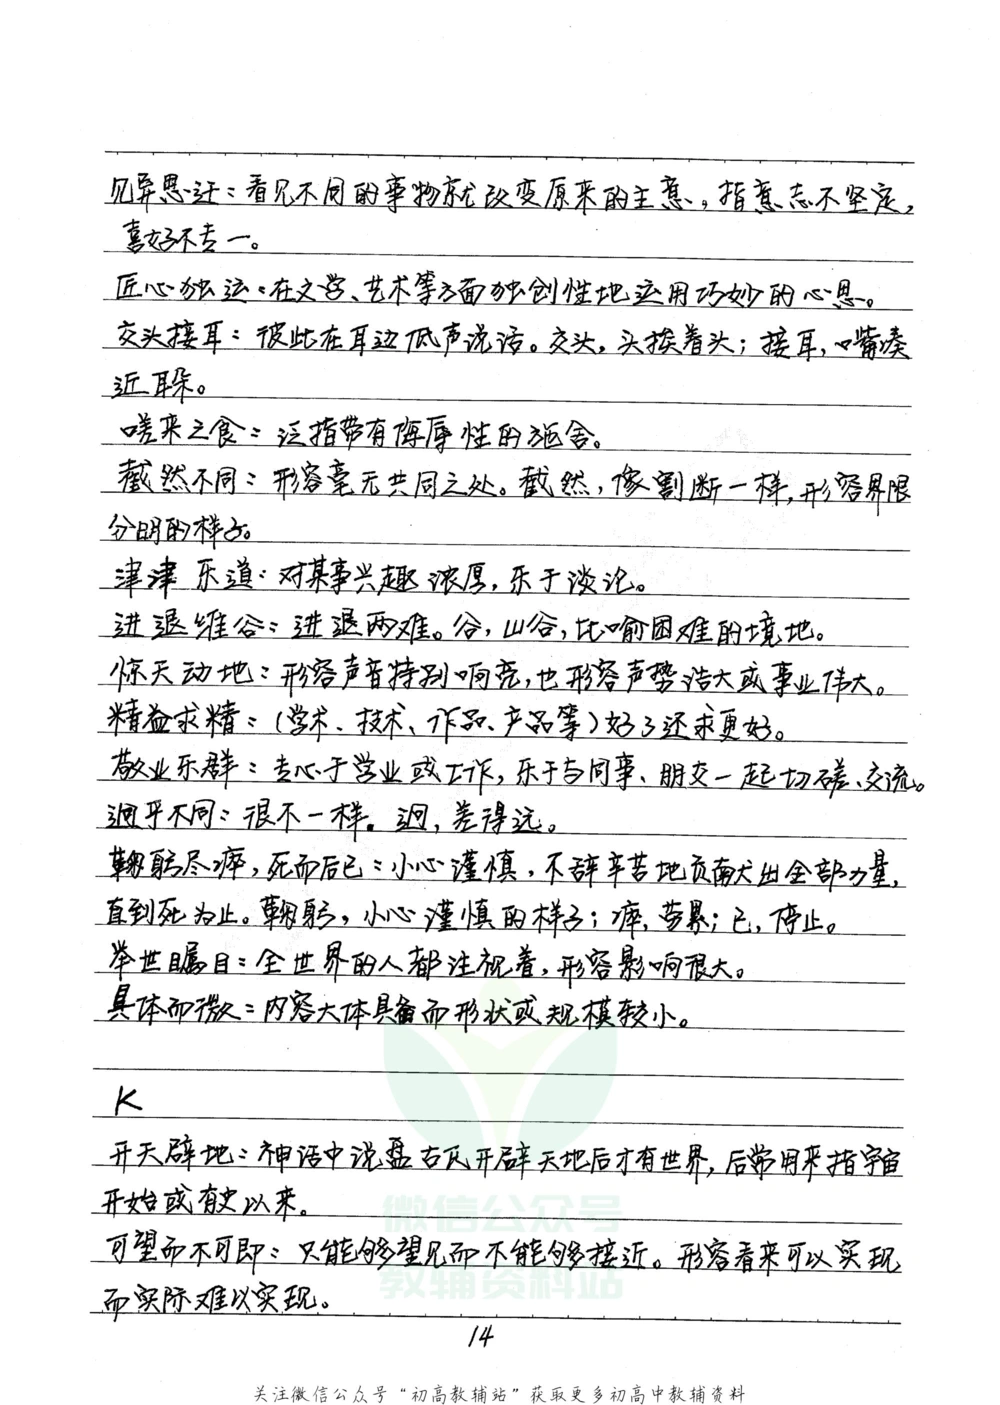 见异思迁：看见不同的事物就改变原来的主意，指意志不坚定，
喜好不专一。
匠心独运：在文学、艺术等方面独创性地运用巧妙的心思。
交头接耳：彼此在耳边低声说话。交头，头挨着头；接耳，嘴凑
近耳朵。
嗟来之食：泛指带有侮辱性的施舍。
截然不同：形容毫无共同之处。截然，像割断一样，形容界限
分明的样子。
津津乐道：对某事兴趣浓厚，乐于谈论。
进退维谷：进退两难。谷，山谷，比喻困难的境地。
惊天动地：形容声音特别响亮，也形容声势浩大或事业伟大。
精益求精：（学术、技术、作品、产品等）好了还求更好。
敬业乐群：专心于学业或工作，乐于与同事、朋友一起切磋、交流。
迥乎不同：很不一样。迥，差得远。
鞠躬尽瘁，死而后已：小心谨慎，不辞辛苦地贡献出全部力量，
直到死为止。鞠躬，小心谨慎的样子；瘁，劳累；已，停止。
举世瞩目：全世界的人都注视着，形容影响很大。
具体而微：内容大体具备而形状或规模较小。
K
开天辟地：神话中说盘古氏开辟天地后才有世界，后常用来指宇宙
开始或有史以来。
可望而不可即：只能够望见而不能够接近。形容看来可以实现
而实际难以实现。
微信公众号
教辅资料站
14
关注微信公众号“初高教辅站”获取更多初高中教辅资料